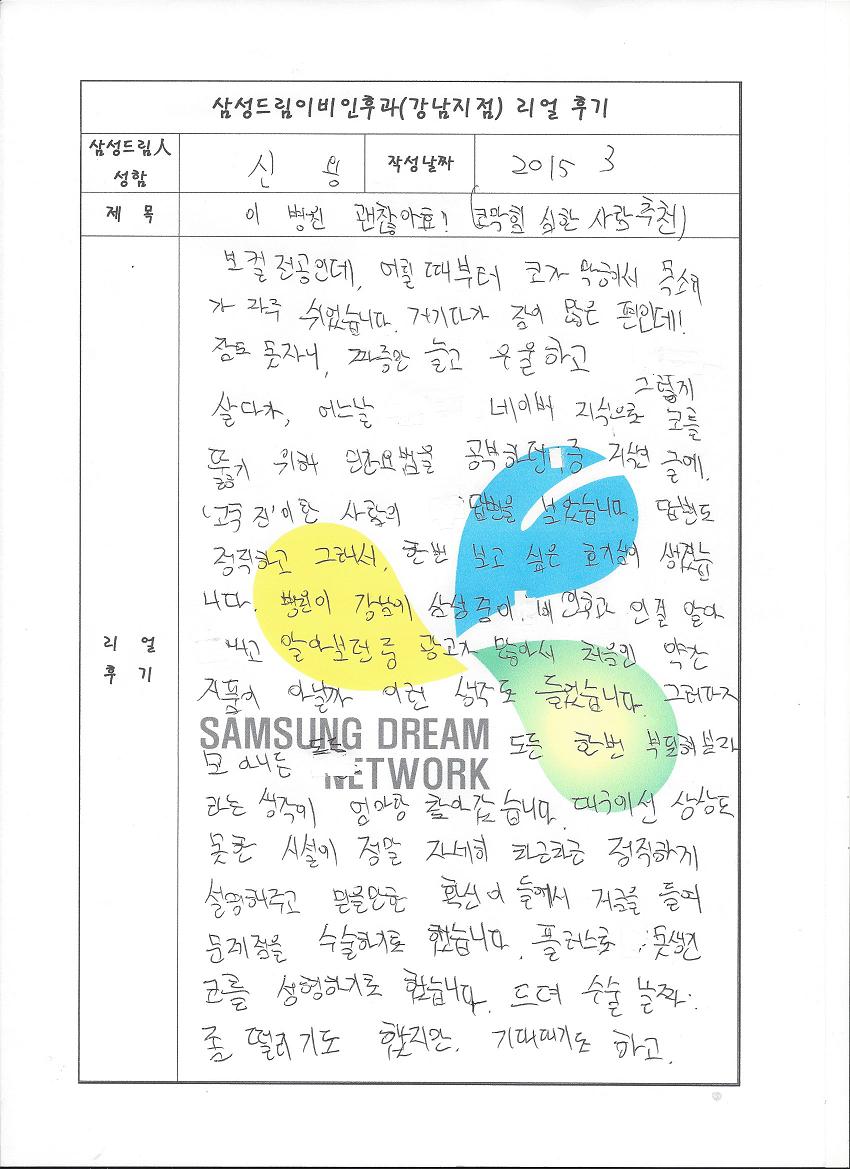 삼성드림이비인후과(강남지점) 리얼 후기
삼성드림人 성함
신 용
작성날짜
2015 3
제 목
이 병원 괜찮아요! (코막힘 심한 사람 추천)
리 얼 후 기
보컬 전공인데, 어릴 때부터 코가 막혀서 목소리
가 자주 쉬었습니다. 거기다가 잠이 많은 편인데!
잠도 못자니, 짜증만 늘고 우울하고
살다가, 어느날 네이버 지식으로 그렇게 코를
뚫기 위해 민간요법을 공부하던 중 지식인 글에.
사람의 답변을 보았습니다. 답변도
정직하고 그래서, 한번 보고 싶은 호기심이 생겼습
니다. 병원이 강남에 삼성중이 비인후과 인걸 알아
내고 알아보던 중 광고가 많아서 처음엔 약간
아닐까 이런 생각도 들었습니다. 그러다가
SAMSUNG DREAM NETWORK
모 아니든 도든 한번 부딪혀보자
라는 생각에 엄마랑 찾아갔습니다. 대구에선 상상도
못한 시설에 정말 자세히 차근차근 정직하게
설명해주고 믿을만한 확신이 들어서 거금을 들여
문제점을 수술하기로 했습니다. 플러스로 못생긴
코를 성형하기로 했습니다. 드뎌 수술 날짜.
좀 떨리기도 했지만. 기대되기도 하고.